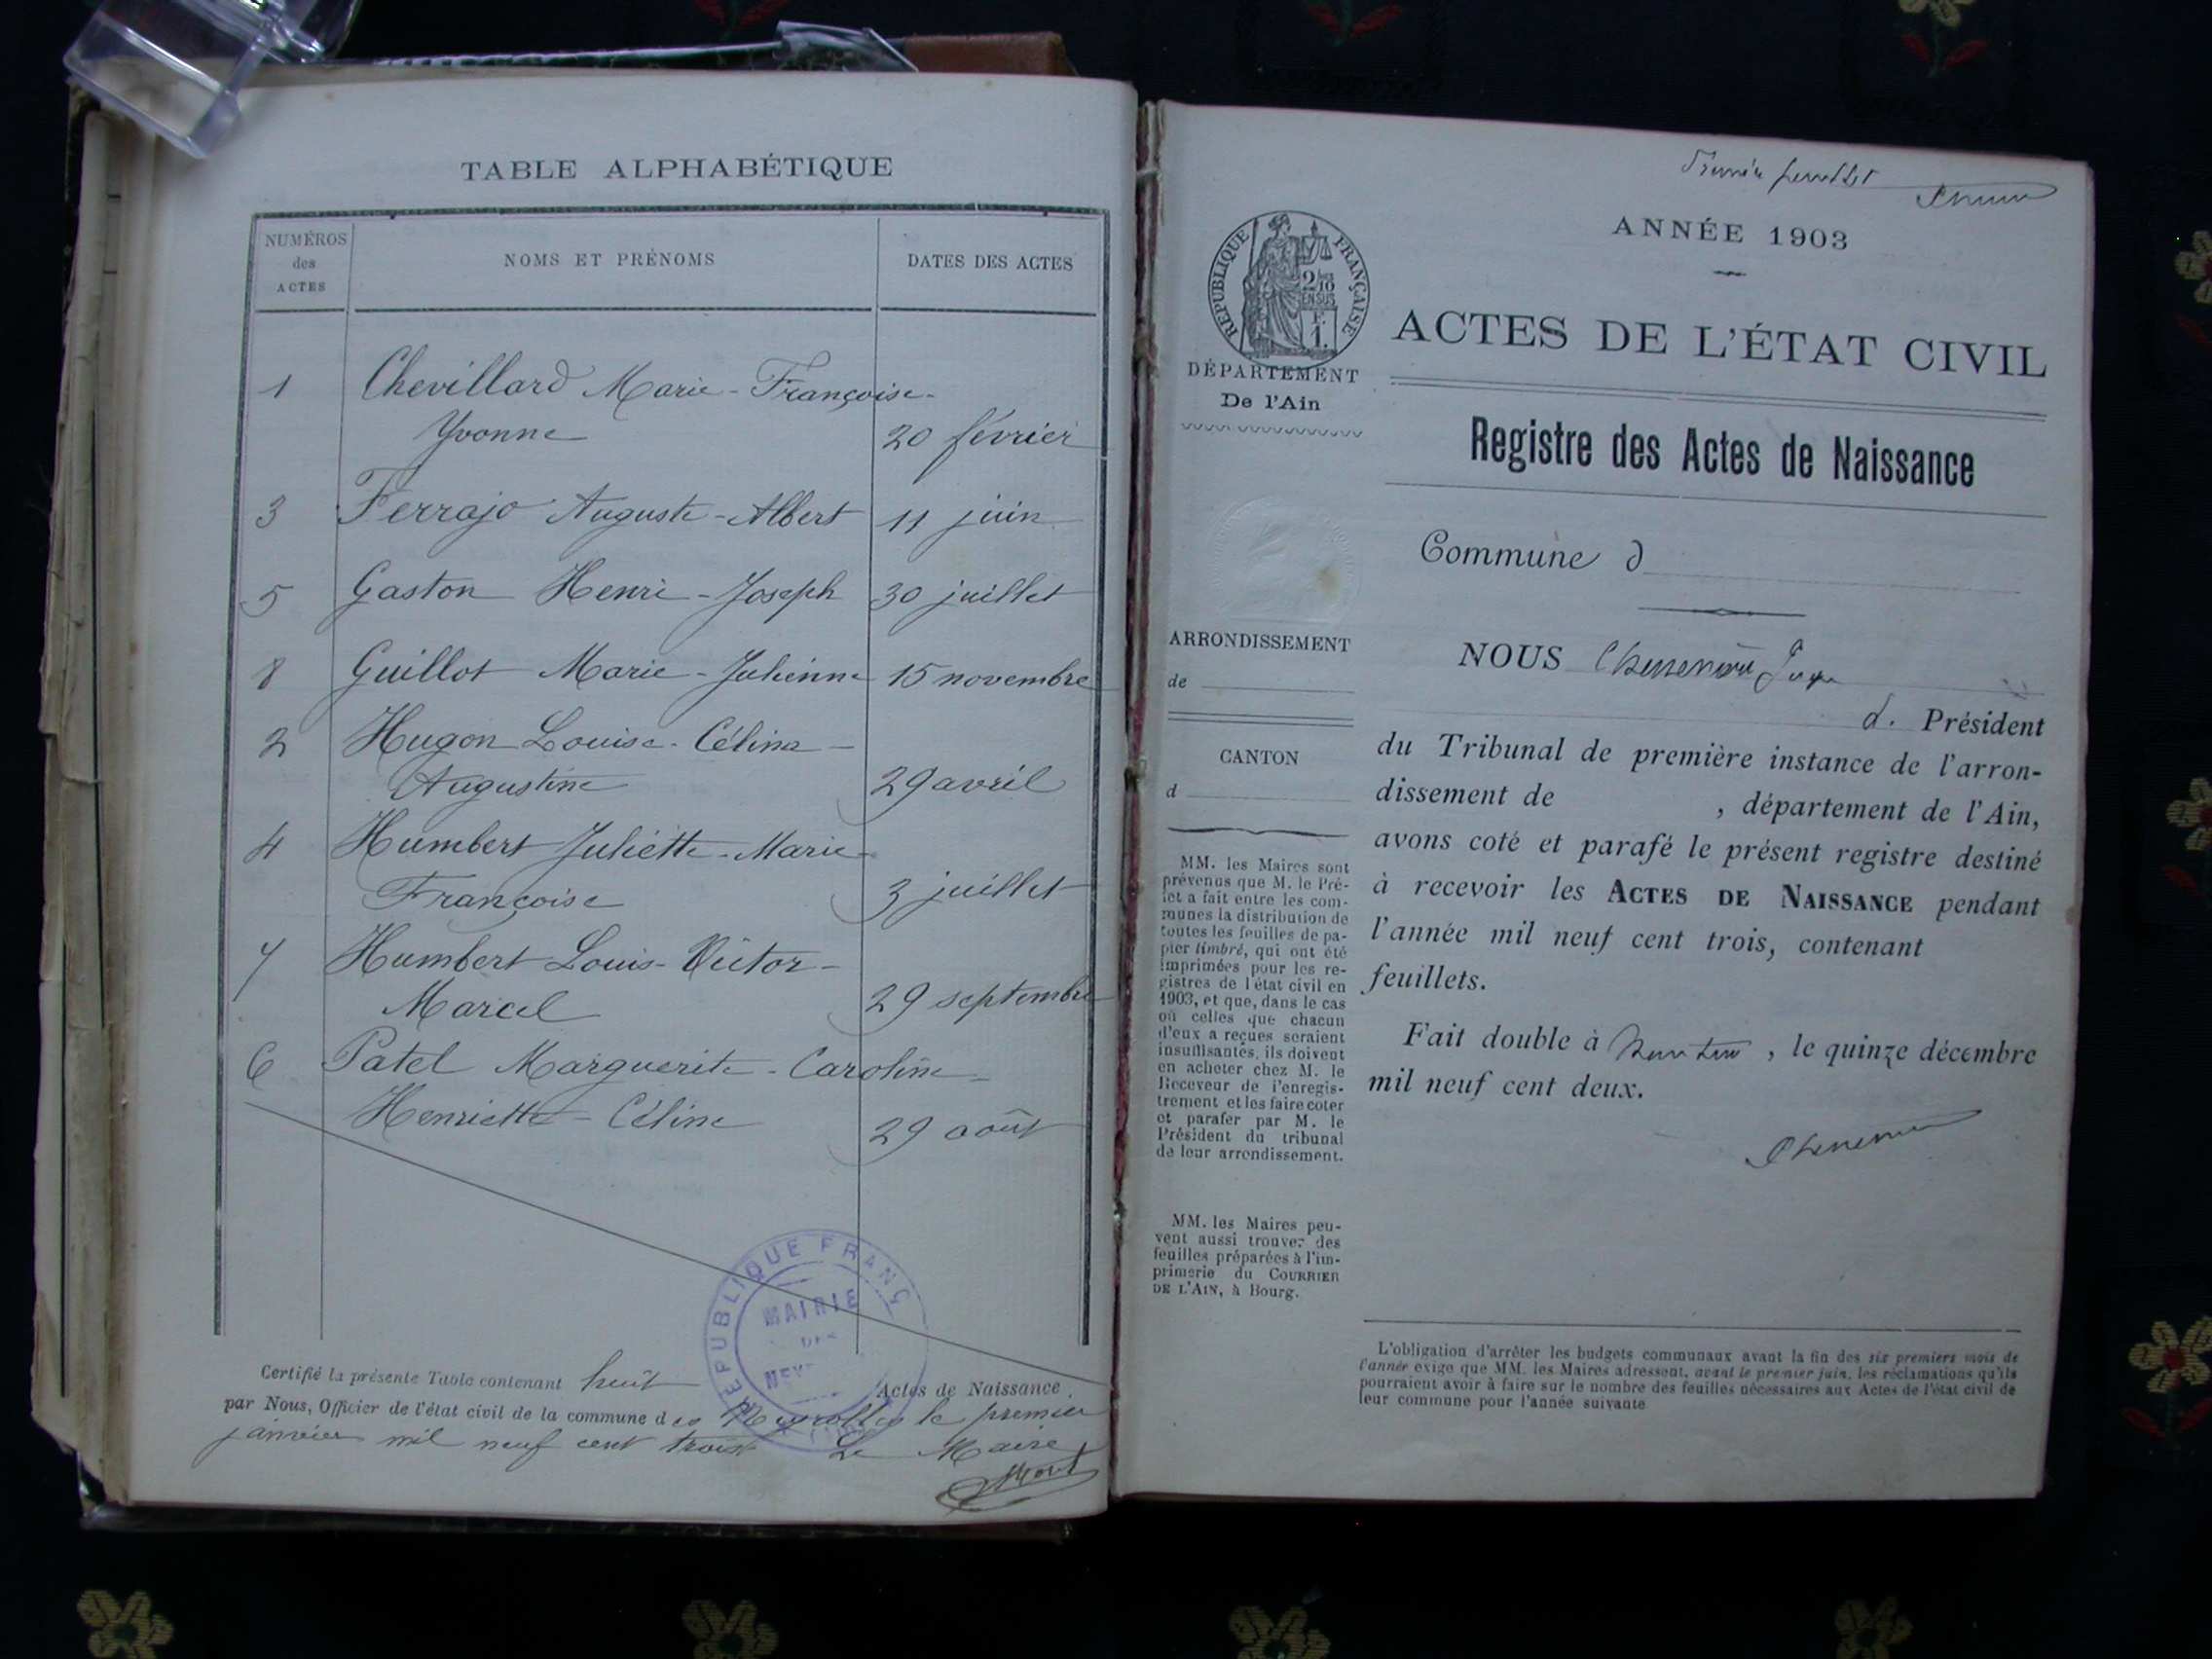 TABLE ALPHABÉTIQUE
NUMÉROS
des
ACTES
NOMS ET PRÉNOMS
DATES DES ACTES
1 Chevillard Marie-Françoise-
Yvonne 20 février
3 Ferrajo Auguste-Albert 11 juin
5 Gaston Henri-Joseph 30 juillet
8 Guillot Marie-Julienne 15 novembre
2 Hugon Louise-Célina-
Augustine 29 avril
4 Humbert Juliette-Marie-
Françoise 3 juillet
7 Humbert Louis-Victor-
Marcel 29 septembre
6 Patel Marguerite-Caroline-
Henriette-Céline 29 août
RÉPUBLIQUE FRANÇ
MAIRIE
DES
NEY
Certifié la présente Table contenant huit Actes de Naissance,
par Nous, Officier de l'état civil de la commune des Neyrolles le premier
janvier mil neuf cent trois Le Maire
ANNÉE 1903
REPUBLIQUE FRANÇAISE
2/10
EN SUS
F.
1.
DÉPARTEMENT
De l'Ain
ACTES DE L'ÉTAT CIVIL
Registre des Actes de Naissance
Commune d
ARRONDISSEMENT
de
CANTON
d
NOUS
d. Président
du Tribunal de première instance de l'arron-
dissement de , département de l'Ain,
avons coté et parafé le présent registre destiné
à recevoir les ACTES DE NAISSANCE pendant
l'année mil neuf cent trois, contenant
feuillets.
Fait double à Nantua, le quinze décembre
mil neuf cent deux.
MM. les Maires sont
prévenus que M. le Pré-
fet a fait entre les com-
munes la distribution de
toutes les feuilles de pa-
pier timbré, qui ont été
imprimées pour les re-
gistres de l'état civil en
1903, et que, dans le cas
où celles que chacun
d'eux a reçues seraient
insuffisantes, ils doivent
en acheter chez M. le
Receveur de l'enregis-
trement et les faire coter
et parafer par M. le
Président du tribunal
de leur arrondissement.
MM. les Maires peu-
vent aussi trouver des
feuilles préparées à l'im-
primerie du COURRIER
DE L'AIN, à Bourg.
L'obligation d'arrêter les budgets communaux avant la fin des six premiers mois de
l'année exige que MM. les Maires adressent, avant le premier juin, les réclamations qu'ils
pourraient avoir à faire sur le nombre des feuilles nécessaires aux Actes de l'état civil de
leur commune pour l'année suivante